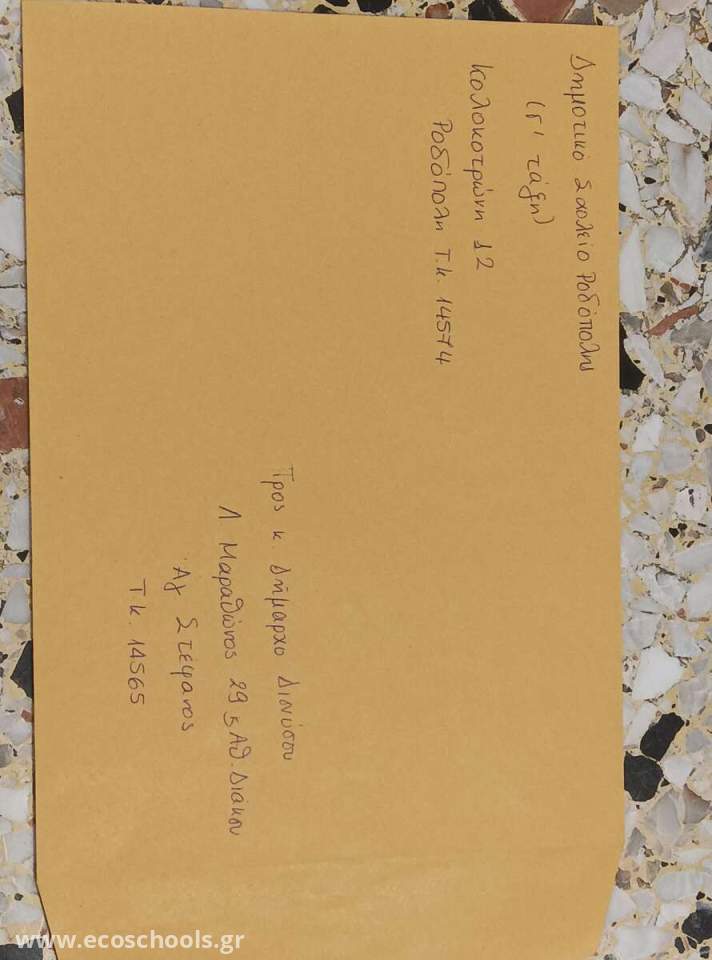 Δημοτικό Σχολείο Ροδόπολης
(Γ' τάξη)
Κολοκοτρώνη 12
Ροδόπολη Τ.Κ. 14574
Προς κ. Δήμαρχο Διονύσου
Λ Μαραθώνος 29 & Αθ. Διάκου
Άγ Στέφανος
Τ.Κ. 14565
www.ecoschools.gr